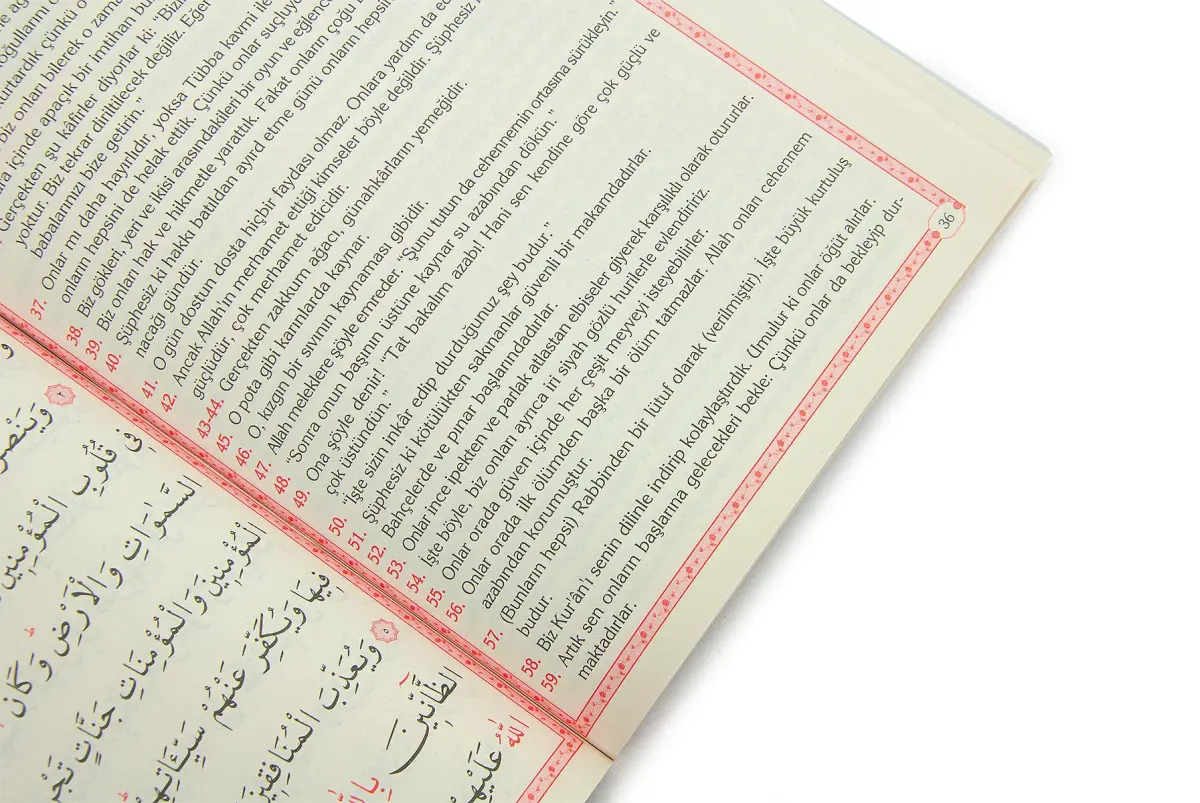 biz onları bilerek o zama
içinde apaçık bir imtihan bu
Gerçekten şu kâfirler diyorlar ki: "Bizi
yoktur. Biz tekrar diriltilecek değiliz. Eğer
babalarımızı bize getirin."
37. Onlar mı daha hayırlıdır, yoksa Tübba kavmi ile
onların hepsini de helak ettik. Çünkü onlar suçluy
38. Biz gökleri, yeri ve ikisi arasındakileri bir oyun ve eğlenc
39. Biz onları hak ve hikmetle yarattık. Fakat onların çoğu
40. Şüphesiz ki hakkı batıldan ayırd etme günü onların hepsi
nacağı gündür.
41. O gün dostun dosta hiçbir faydası olmaz. Onlara yardım da ed
42. Ancak Allah'ın merhamet ettiği kimseler böyle değildir. Şüphesiz
güçlüdür, çok merhamet edicidir.
43-44. Gerçekten zakkum ağacı, günahkârların yemeğidir.
45. O pota gibi karınlarda kaynar.
46. O, kızgın bir sıvının kaynaması gibidir.
47. Allah meleklere şöyle emreder. "Şunu tutun da cehennemin ortasına sürükleyin."
48. "Sonra onun başının üstüne kaynar su azabından dökün."
49. Ona şöyle denir: "Tat bakalım azabı! Hani sen kendine göre çok güçlü ve
çok üstündün."
50. "İşte sizin inkâr edip durduğunuz şey budur."
51. Şüphesiz ki kötülükten sakınanlar güvenli bir makamdadırlar.
52. Bahçelerde ve pınar başlarındadırlar.
53. Onlar ince ipekten ve parlak atlastan ebiseler giyerek karşılıklı olarak otururlar.
54. İşte böyle, biz onları ayrıca iri siyah gözlü hurilerle evlendiririz.
55. Onlar orada güven içinde her çeşit meyveyi isteyebilirler.
56. Onlar orada ilk ölümden başka bir ölüm tatmazlar. Allah onları cehennem
azabından korumuştur.
57. (Bunların hepsi) Rabbinden bir lütuf olarak (verilmiştir). İşte büyük kurtuluş
budur.
58. Biz Kur'ân'ı senin dilinle indirip kolaylaştırdık. Umulur ki onlar öğüt alırlar.
59. Artık sen onların başlarına gelecekleri bekle: Çünkü onlar da bekleyip dur-
maktadırlar.
36
وَيَنْصُرَ
فِي قُلُوبِ الْمُؤْمِنِينَ
السَّمٰوَاتِ وَالْاَرْضِ وَكَانَ
الْمُؤْمِنِينَ وَالْمُؤْمِنَاتِ جَنَّاتٍ تَجْرِ
فِيهَا وَيُكَفِّرَ عَنْهُمْ سَيِّـَٔاتِهِمْ
٥ وَيُعَذِّبَ الْمُنَافِقِينَ
الظَّانِّينَ بِاللّٰهِ
اللّٰهُ عَلَيْهِمْ